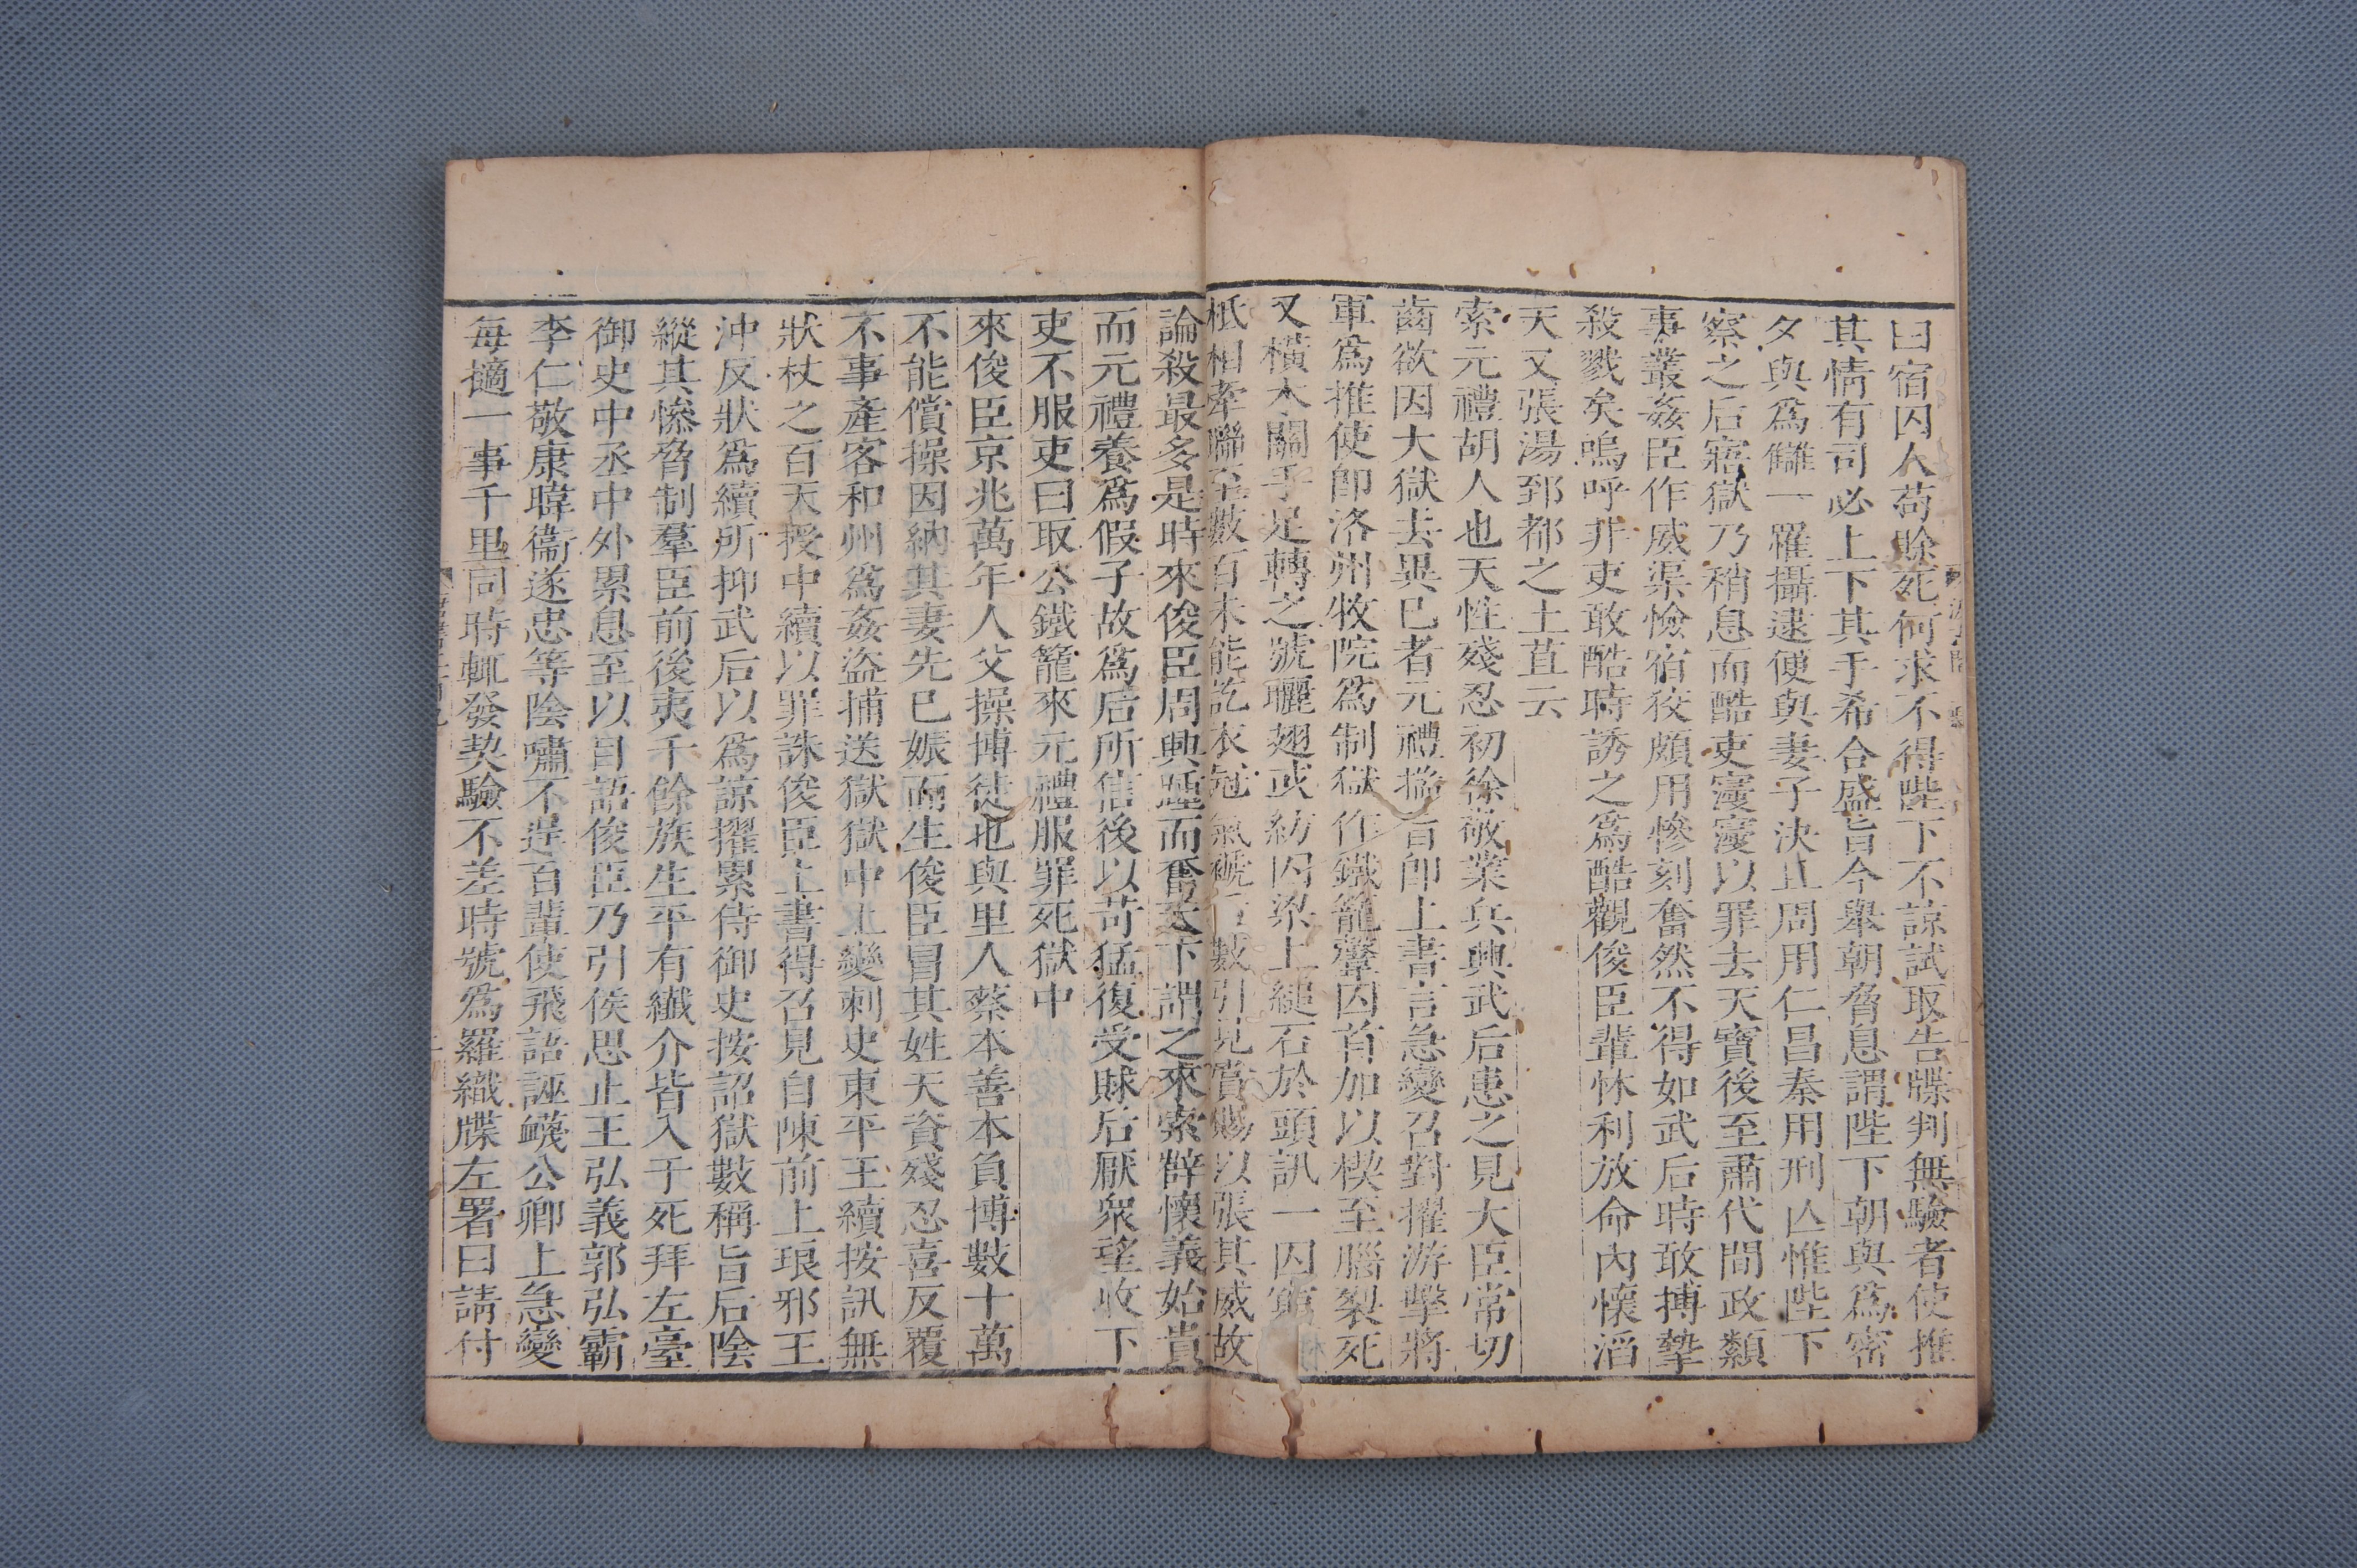 曰宿囚人苟賒死何求不得陛下不諒試取告牒判無驗者使推
其情有司必上下其手希合盛旨今舉朝脅息謂陛下朝與爲密
夕與爲讎一罹攝逮便與妻子決止周用仁昌秦用刑亾惟陛下
察之后寤獄乃稍息而酷吏寖寖以罪去天寶後至肅代間政纇
事叢姦臣作威渠憸宿狡頗用慘刻奮然不得如武后時敢搏摯
殺戮矣嗚呼非吏敢酷時誘之爲酷觀俊臣輩怵利放命內懷滔
天又張湯郅都之土苴云
索元禮胡人也天性殘忍初徐敬業兵興武后患之見大臣常切
齒欲因大獄去異已者元禮揣旨卽上書言急變召對擢游擊將
軍爲推使卽洛州牧院爲制獄作鐵籠𩎟囚首加以楔至腦裂死
又橫木關手足轉之號曬翅或紡囚梁上縋石於頭訊一囚窮
柢相牽聯至數百未能訖衣冠氣褫后數引見賞賜以張其威故
論殺最多是時來俊臣周興踵而奮天下謂之來索薛懷義始貴
而元禮養爲假子故爲后所信後以苛猛復受賕后厭衆望收下
吏不服吏曰取公鐵籠來元禮服罪死獄中
來俊臣京兆萬年人父操博徒也與里人蔡本善本負博數十萬
不能償操因納其妻先已娠而生俊臣冒其姓天資殘忍喜反覆
不事產客和州爲姦盜捕送獄獄中上變刺史東平王續按訊無
狀杖之百天授中續以罪誅俊臣上書得召見自陳前上琅邪王
沖反狀爲續所抑武后以爲諒擢累侍御史按詔獄數稱旨后陰
縱其慘脅制羣臣前後夷千餘族生平有纎介皆入于死拜左臺
御史中丞中外累息至以目語俊臣乃引侯思止王弘義郭弘霸
李仁敬康暐衞遂忠等陰嘯不逞百輩使飛語誣衊公卿上急變
每擿一事千里同時輒發契驗不差時號爲羅織牒左署曰請付